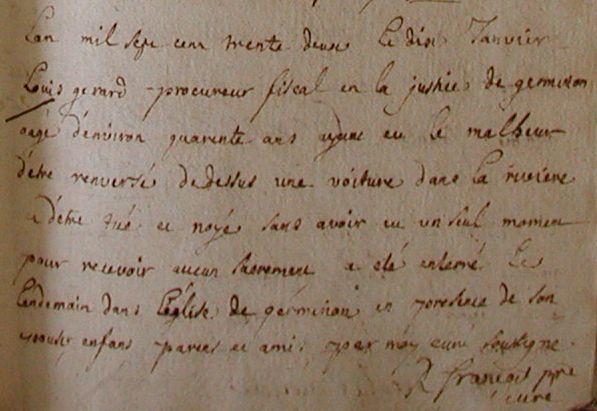 Lan mil sept cent trente deux Le dix Janvier
Louis gerard procureur fiscal en la justice de germinon
aagé d'environ quarente ans ayant eu le malheur
d'être renversé dedessus une voiture dans La riviere
d'être tué et noyé sans avoir eu un seul moment
pour recevoir aucun sacrement a été enterré Le
Lendemain dans L'église de germinon en presence de son
enfans parens et amis par moy curé soussigné
R françois pre
curé